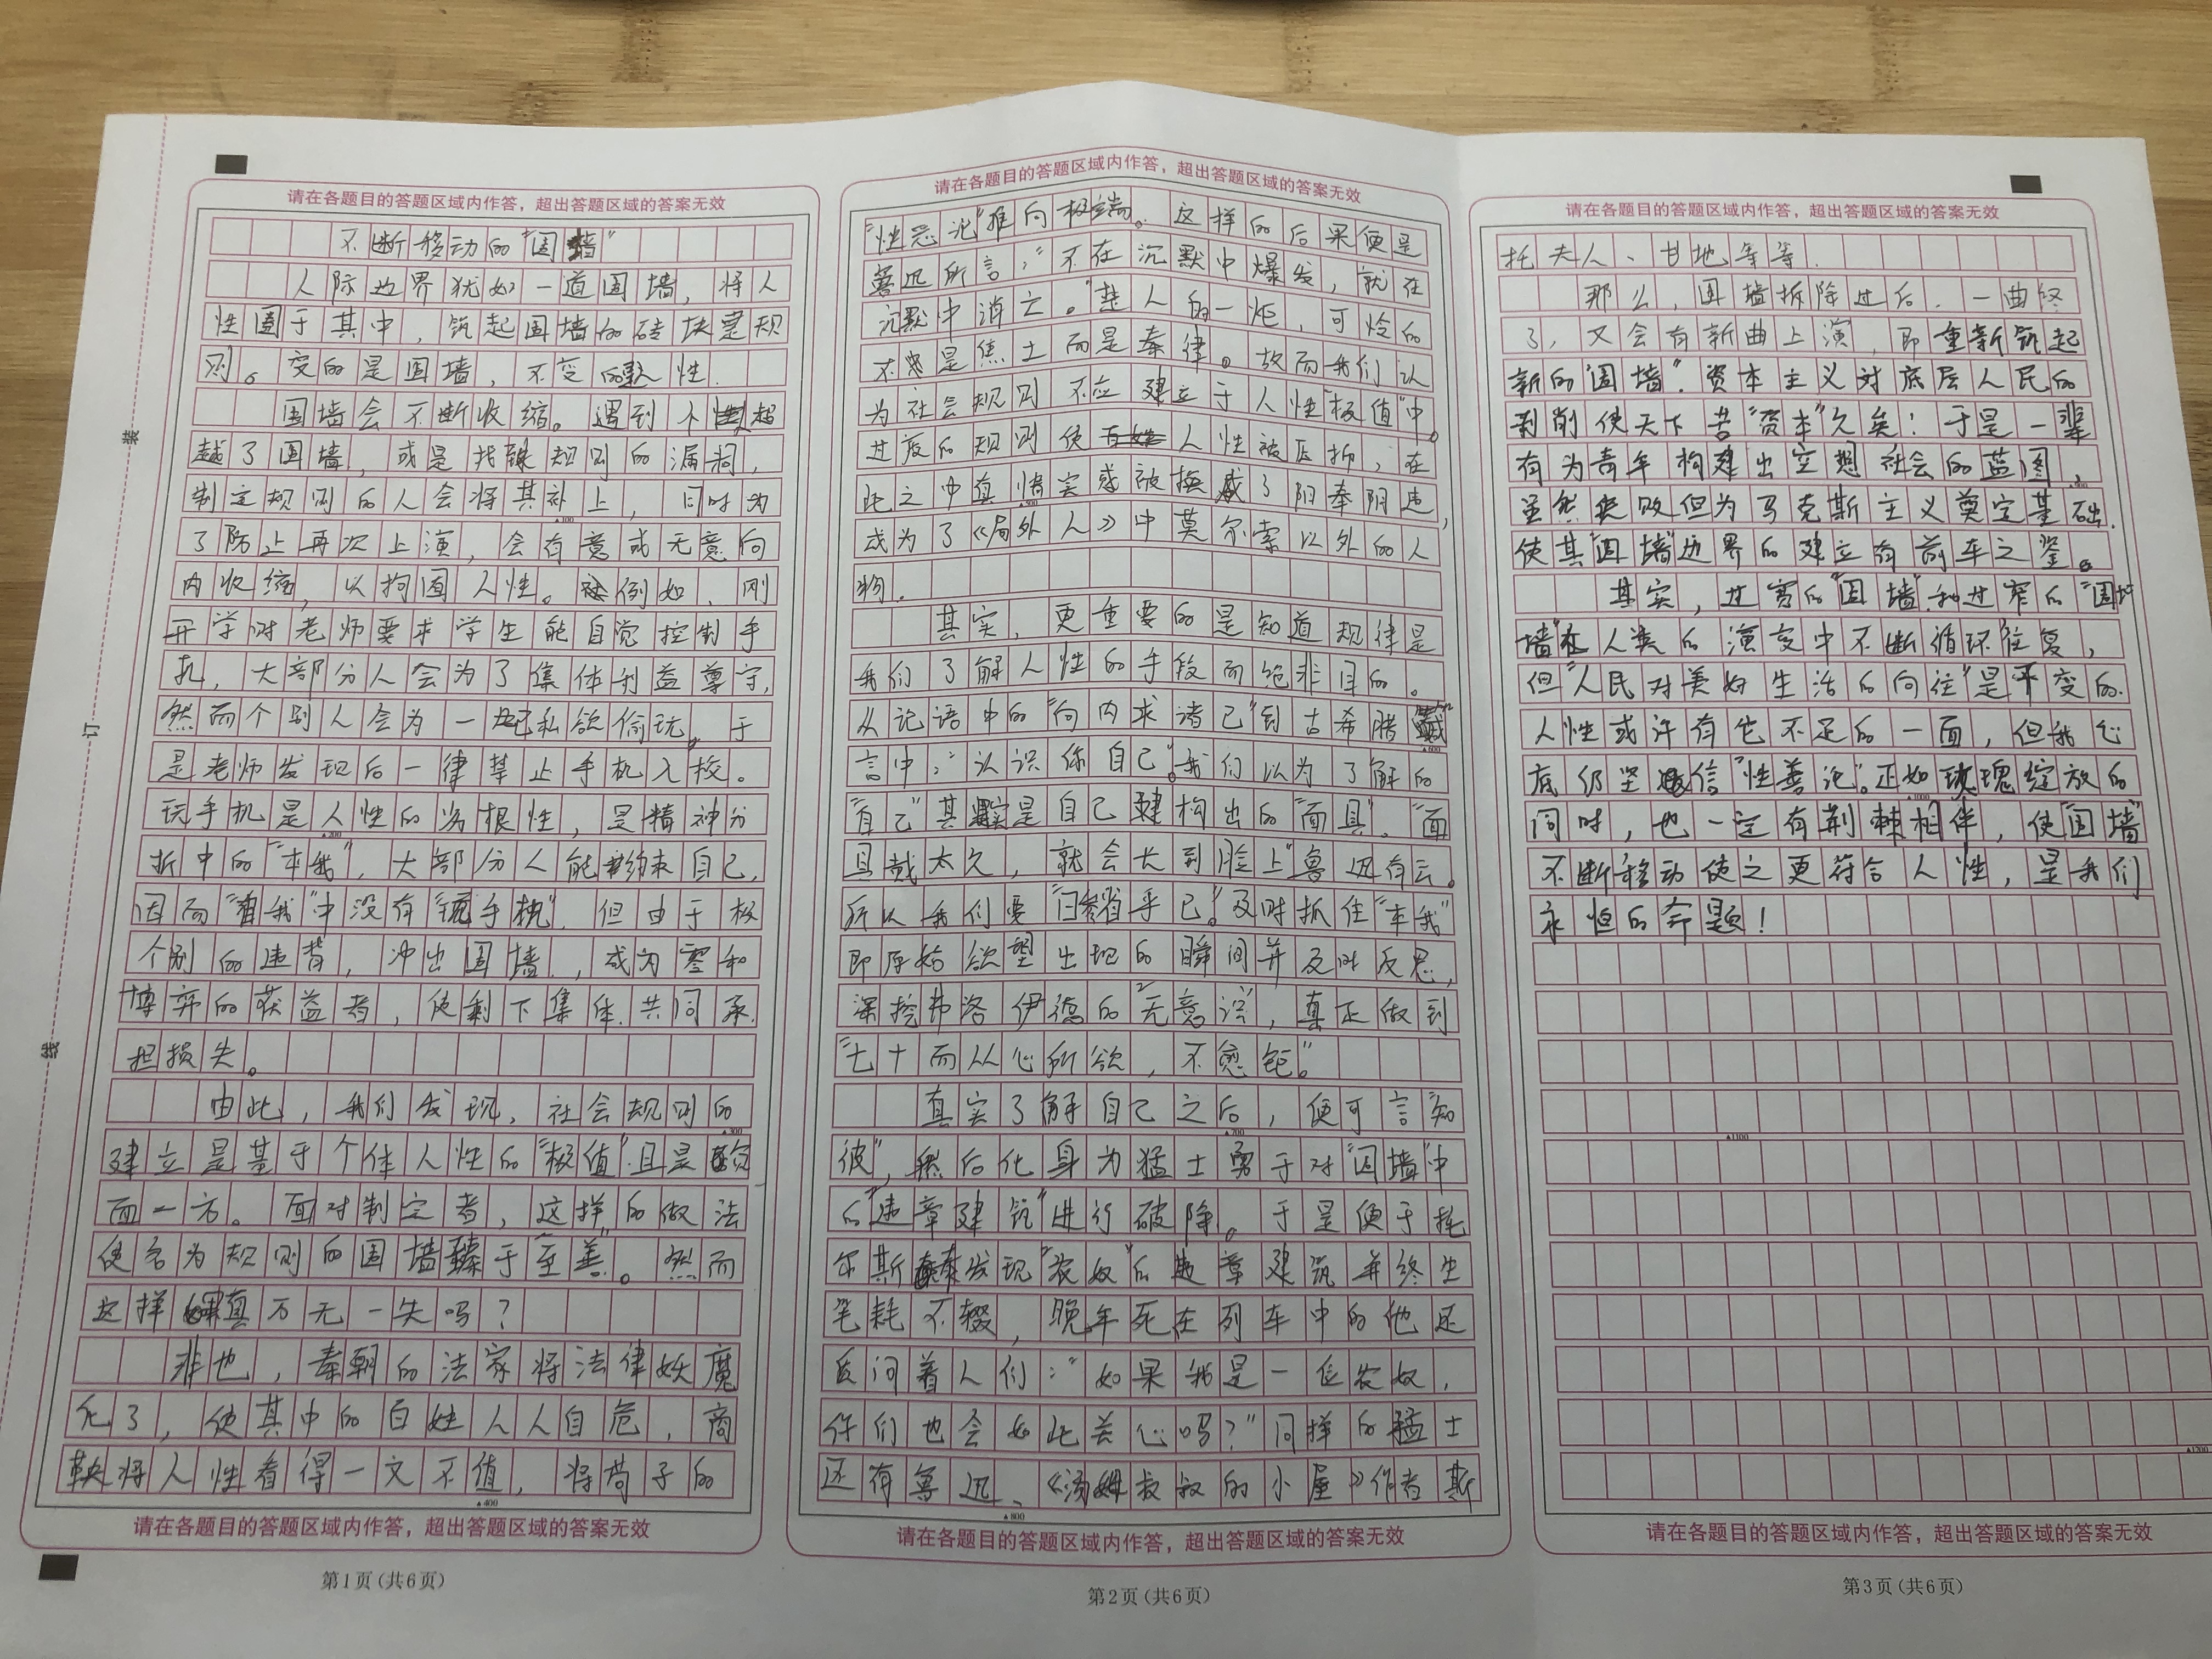 请在各题目的答题区域内作答，超出答题区域的答案无效
不断移动的“围墙”
人际边界犹如一道围墙，将人
性围于其中，筑起围墙的砖块是规
则。变的是围墙，不变的是人性.
围墙会不断收缩。遇到个别超
越了围墙，或是找到规则的漏洞，
制定规则的人会将其补上，同时为
▲100
了防止再次上演，会有意或无意向
内收缩，以拘围人性。例如，刚
开学时老师要求学生能自觉控制手
机，大部分人会为了集体利益尊守，
然而个别人会为一己私欲偷玩，于
是老师发现后一律禁止手机入校。
玩手机是人性的劣根性，是精神分
▲200
析中的“本我”，大部分人能约束自己，
因而“自我”中没有“玩手机”.但由于极
个别的违背，冲出围墙，成为零和
博弈的获益者，使剩下集体共同承
担损失。
由此，我们发现，社会规则的
▲300
建立是基于个体人性的“极值”.且是负
面一方。面对制定者，这样的做法
使名为规则的围墙“臻于至善”。然而
这样果真万无一失吗？
非也，秦朝的法家将法律妖魔
化了，使其中的百姓人人自危，商
鞅将人性看得一文不值，将荀子的
▲400
请在各题目的答题区域内作答，超出答题区域的答案无效
第1页(共6页)
装
订
线
请在各题目的答题区域内作答，超出答题区域的答案无效
“性恶论”推向极端。这样的后果便是
鲁迅所言：“不在沉默中爆发，就在
沉默中消亡。”楚人的一炬，可怜的
不是焦土而是秦律。故而我们认
为社会规则不应建立于人性“极值”中。
过度的规则使人性被压抑，在
此之中真情实感被换成了阳奉阴违，
▲500
成为了《局外人》中莫尔索以外的人
物.
其实，更重要的是知道规律是
我们了解人性的手段而绝非目的。
从论语中的“向内求诸己”到古希腊
▲600
言中：“认识你自己。”我们以为了解的
“自己”其实是自己建构出的“面具”，“面
具戴太久，就会长到脸上”鲁迅有云。
所以我们要“日参省乎己”。及时抓住“本我”
即原始欲望出现的瞬间并及时反思，
深挖弗洛伊德的“无意识”，真正做到
“七十而从心所欲，不愈矩。”
真实了解自己之后，便可言“知
▲700
彼”，然后化身为猛士勇于对“围墙”中
的“违章建筑”进行破除。于是便于托
尔斯泰发现“农奴”的违章建筑并终生
笔耗不辍，晚年死在列车中的他还
反问着人们：“如果我是一位农奴，
你们也会如此关心吗？”同样的猛士
还有鲁迅、《汤姆叔叔的小屋》作者斯
▲800
请在各题目的答题区域内作答，超出答题区域的答案无效
第2页(共6页)
请在各题目的答题区域内作答，超出答题区域的答案无效
托夫人、甘地等等.
那么，围墙拆除过后，一曲终
了，又会有新曲上演，即重新筑起
新的“围墙”.资本主义对底层人民的
剥削使天下苦“资本”久矣！于是一辈
有为青年构建出空想社会的蓝图，
▲900
虽然失败但为马克斯主义奠定基础.
使其“围墙”边界的建立有前车之鉴。
其实，过宽的“围墙”和过窄的“围
墙”在人类的演变中不断循环往复，
但“人民对美好生活的向往”是不变的.
人性或许有它不足的一面，但我心
底仍坚信“性善论”.正如玫瑰绽放的
▲1000
同时，也一定有荆棘相伴，使“围墙”
不断移动使之更符合人性，是我们
永恒的命题！
▲1100
▲1200
请在各题目的答题区域内作答，超出答题区域的答案无效
第3页(共6页)